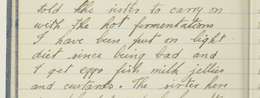 told the sister to carry on
with the hot fomentations
I have been put on light
diet since being bad and
I get eggs fish milk jellies
and custards. The sister here